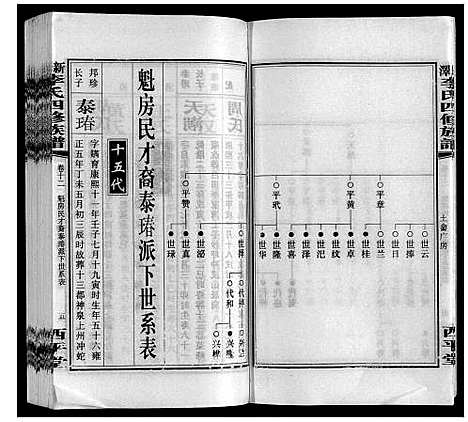 李氏四修族谱
土畲广房
西平堂
平章
平黄
平玳
世云
世日
世兰
世桂
世卓
世纹
世汜
世泽
世喜
世隆
世华
平赞
世泌
世真
世球
代和
兴隆
兴樵
魁房民才裔泰瑃派下世系表
十五代
邦珍
长子
泰瑃
字耦育康熙十一年壬子七月十九寅时生年五十六雍
正五年丁未五月初三辰时故葬十三都神泉上州冲蛇
新
李氏四修族谱
卷十二
魁房民才裔泰瑃派下世系表
五
西平堂